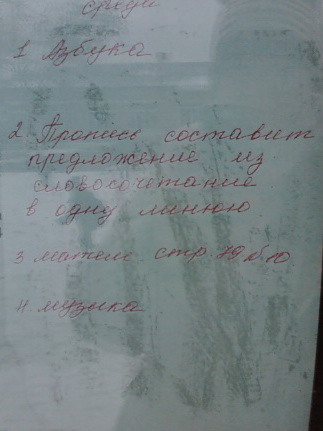 среда
1 Азбука
2 Пропись составит
предложение из
словосочетание
в одну линюю
3 матем стр. 79 №10
4. музыка